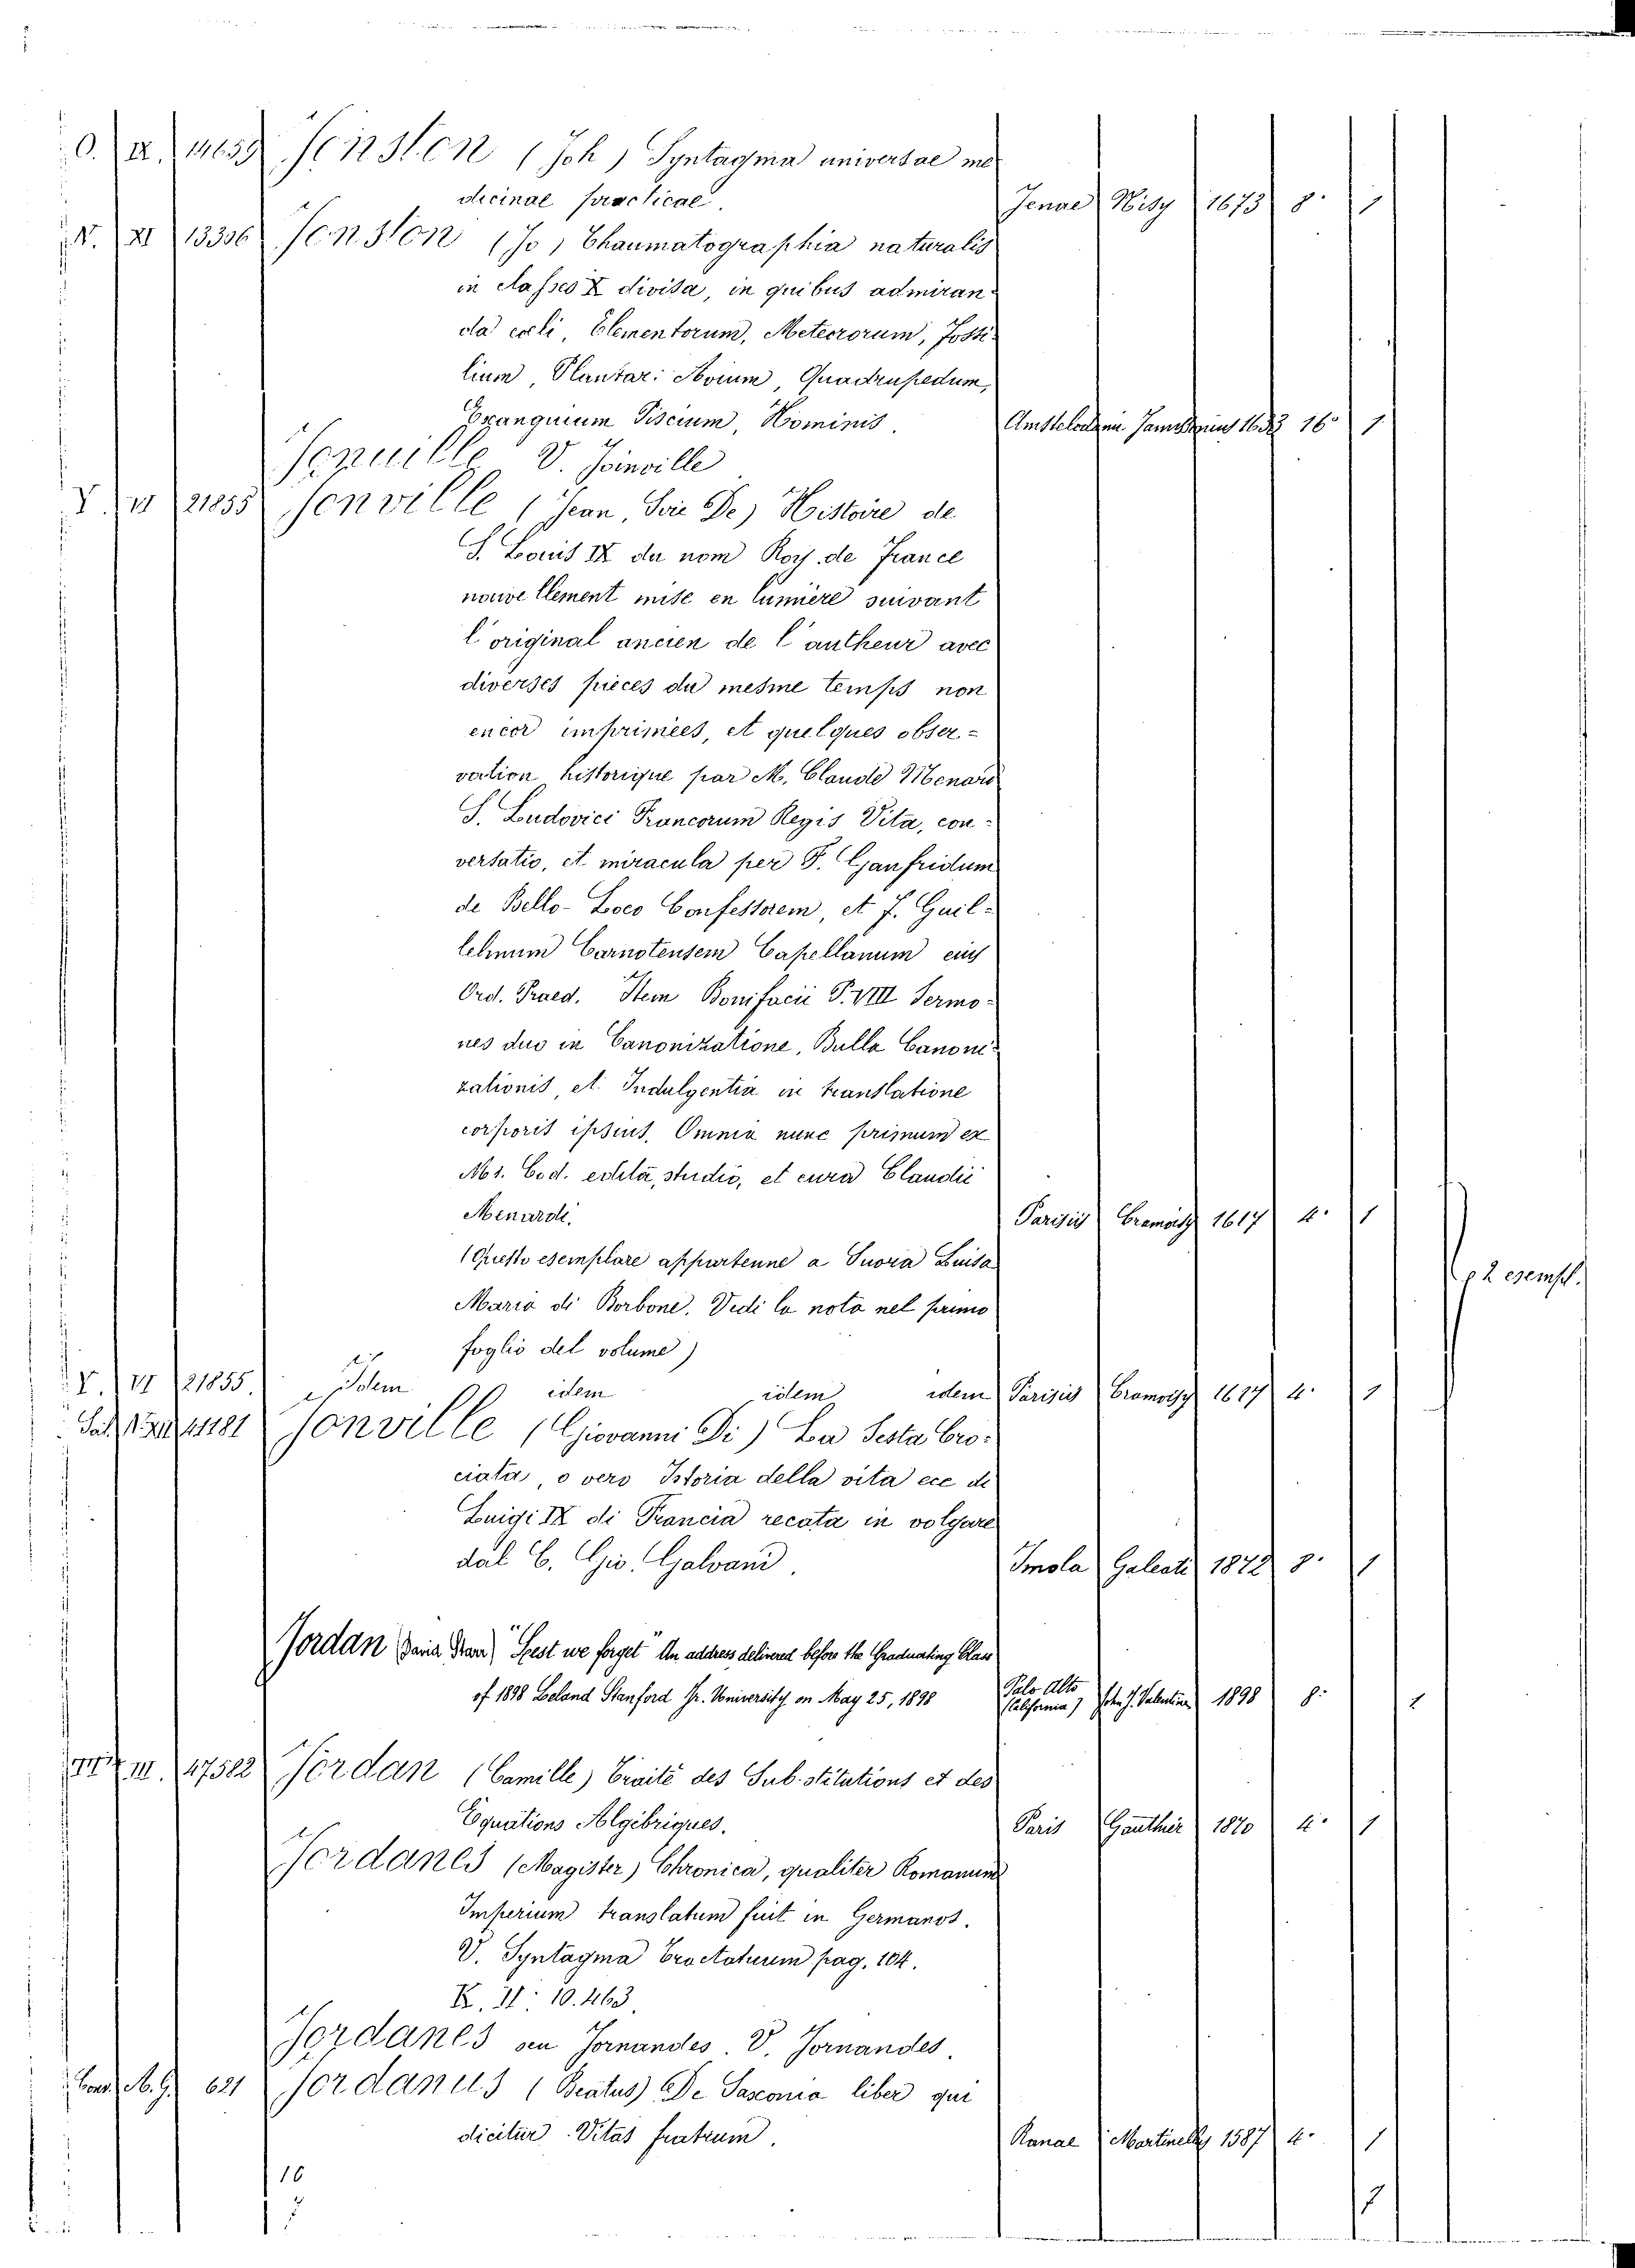 O. IX. 14659 Jonston (Joh) Syntagma universae me
dicinae practicae. Jenae Nisy 1673 8. 1
V. XI 13306 Jonston (Jo) Thaumatographia naturalis
in classes X divisa, in quibus admiran-
da coeli, Elementorum, Meteororum, Fossi-
lium, Plantar: Avium, Quadrupedum,
Exanguium Piscium, Hominis. 16. 1
Jonuille V. Joinville
Y. VI 21855 Jonville (Jean, Sire De) Histoire de
S. Louis IX du nom Roy de France
nouvellement mise en lumière suivant
l'original ancien de l'autheur avec
diverses pièces du mesme temps non
encor imprimées, et quelques obser-
vation historique par M. Claude Menard
S. Ludovici Francorum Regis Vita, con-
versatio, et miracula per F. Gaufridum
de Bello-Loco Confessorem, et F. Guil-
lelmum Carnotensem Capellanum eius
Ord. Praed. Item Bonifacii P. VIII Sermo-
nes duo in Canonizatione, Bulla Canoni-
zationis, et Indulgentia in translatione
corporis ipsius. Omnia nunc primum ex
Ms. Cod. edita, studio, et cura Claudii
Menardi. Parisiis Cramoisy 1617 4. 1
(Questo esemplare appartenne a Suora Luisa
Maria di Borbone. Vedi la nota nel primo
foglio del volume)
2 esempl.
Y. VI 21855 Idem idem idem idem Parisiis Cramoisy 1617 4. 1
41181 Jonville (Giovanni Di) La Sesta Cro-
ciata, o vero Istoria della vita ecc di
Luigi IX di Francia recata in volgare
dal C. Gio. Galvani. Imola Galeati 1872 8. 1
Jordan (David Starr) "Lest we forget" An address delivered before the Graduating Class
of 1898 Leland Stanford Jr. University on May 25, 1898 Palo Alto (California) John J. Valentine 1898 8. 1
III. 47522 Jordan (Camille) Traité des Substitutions et des
Equations Algébriques. Paris Gauthier 1870 4. 1
Jordanes (Magister) Chronica, qualiter Romanum
Imperium translatum fuit in Germanos.
V. Syntagma Tractatuum pag. 104.
K. II. 10.463
Jordanes seu Jornandes. V. Jornandes.
621 Jordanus (Beatus) De Saxonia liber qui
dicitur Vitas fratrum. Romae Martinelly 1587 4. 1
10
7
7